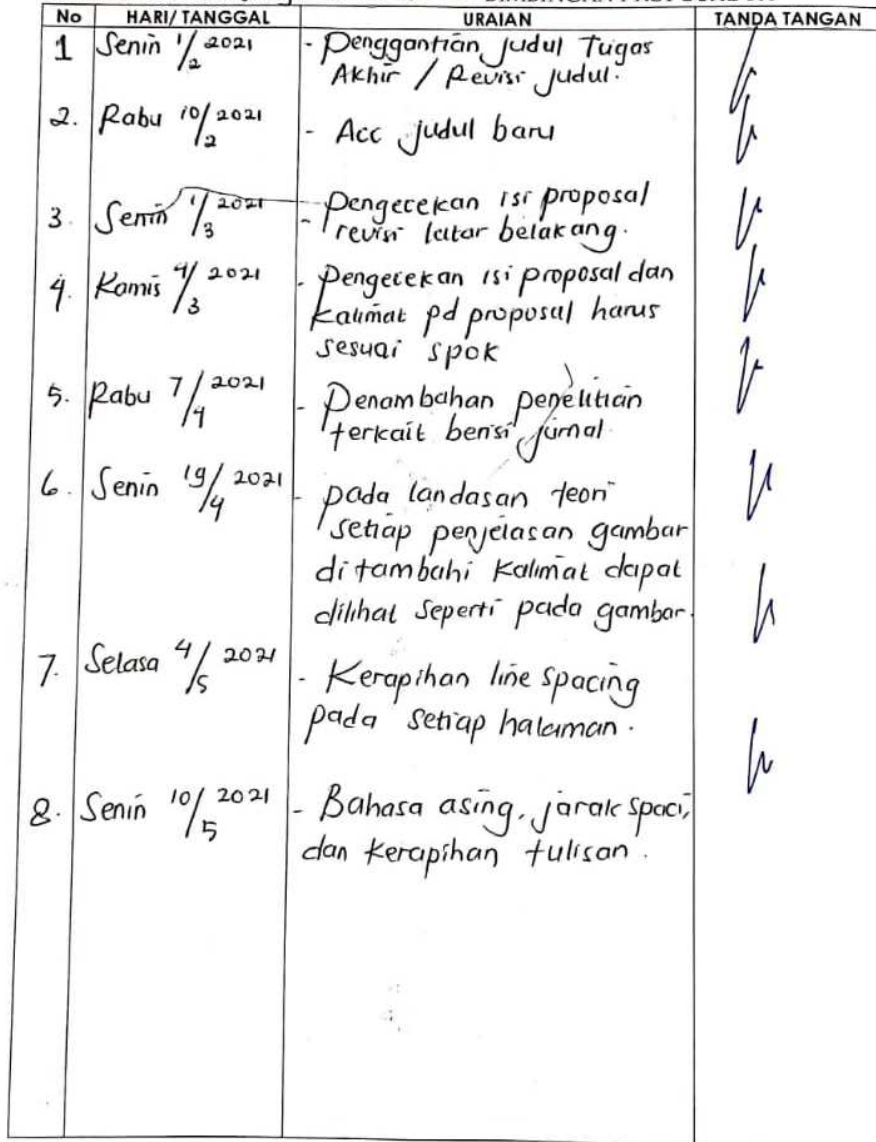 No HARI/ TANGGAL URAIAN TANDA TANGAN
1 Senin 1/2 2021 - Penggantian judul Tugas
Akhir / Revisi judul.
2. Rabu 10/2 2021 - Acc judul baru
3. Senin 1/3 2021 - Pengecekan isi proposal
revisi latar belakang.
4. Kamis 4/3 2021 - Pengecekan isi proposal dan
Kalimat pd proposal harus
sesuai spok
5. Rabu 7/4 2021 - Penambahan penelitian
terkait berisi jurnal
6. Senin 19/4 2021 - pada landasan teori
setiap penjelasan gambar
ditambahi kalimat dapat
dilihat seperti pada gambar.
7. Selasa 4/5 2021 - Kerapihan line spacing
pada setiap halaman.
8. Senin 10/5 2021 - Bahasa asing, jarak spaci,
dan kerapihan tulisan.